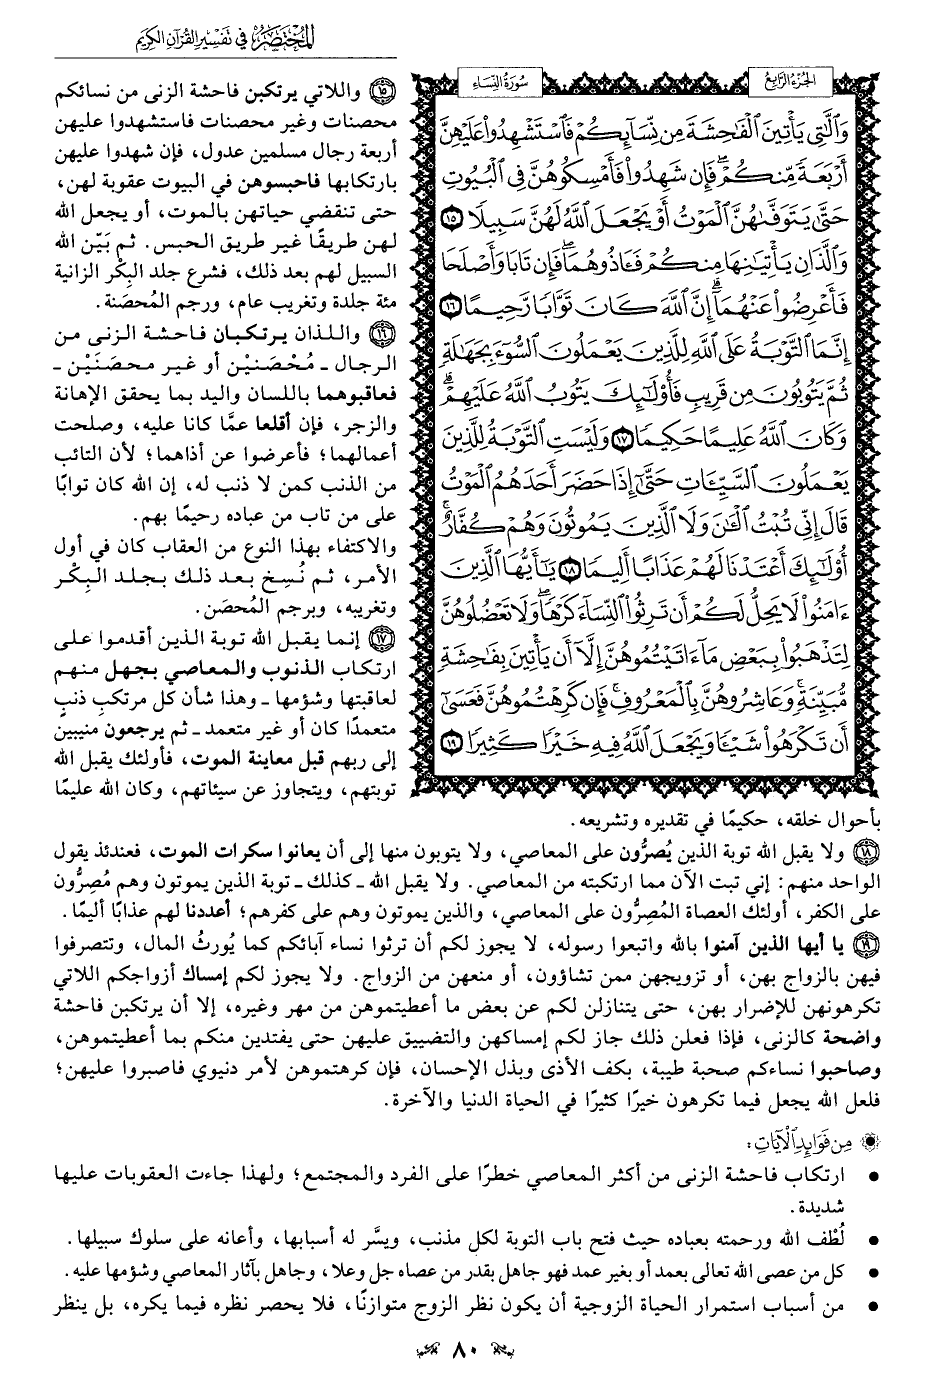 المختصر في تفسير القرآن الكريم
الجزء الرابع
سورة النساء
وَٱلَّٰتِي يَأۡتِينَ ٱلۡفَٰحِشَةَ مِن نِّسَآئِكُمۡ فَٱسۡتَشۡهِدُواْ عَلَيۡهِنَّ
أَرۡبَعَةٗ مِّنكُمۡۖ فَإِن شَهِدُواْ فَأَمۡسِكُوهُنَّ فِي ٱلۡبُيُوتِ
حَتَّىٰ يَتَوَفَّىٰهُنَّ ٱلۡمَوۡتُ أَوۡ يَجۡعَلَ ٱللَّهُ لَهُنَّ سَبِيلٗا ١٥
وَٱلَّذَانِ يَأۡتِيَٰنِهَا مِنكُمۡ فَـَٔاذُوهُمَاۖ فَإِن تَابَا وَأَصۡلَحَا
فَأَعۡرِضُواْ عَنۡهُمَآۗ إِنَّ ٱللَّهَ كَانَ تَوَّابٗا رَّحِيمًا ١٦
إِنَّمَا ٱلتَّوۡبَةُ عَلَى ٱللَّهِ لِلَّذِينَ يَعۡمَلُونَ ٱلسُّوٓءَ بِجَهَٰلَةٖ
ثُمَّ يَتُوبُونَ مِن قَرِيبٖ فَأُوْلَٰٓئِكَ يَتُوبُ ٱللَّهُ عَلَيۡهِمۡۗ
وَكَانَ ٱللَّهُ عَلِيمًا حَكِيمٗا ١٧ وَلَيۡسَتِ ٱلتَّوۡبَةُ لِلَّذِينَ
يَعۡمَلُونَ ٱلسَّيِّـَٔاتِ حَتَّىٰٓ إِذَا حَضَرَ أَحَدَهُمُ ٱلۡمَوۡتُ
قَالَ إِنِّي تُبۡتُ ٱلۡـَٰٔنَ وَلَا ٱلَّذِينَ يَمُوتُونَ وَهُمۡ كُفَّارٌۚ
أُوْلَٰٓئِكَ أَعۡتَدۡنَا لَهُمۡ عَذَابًا أَلِيمٗا ١٨ يَٰٓأَيُّهَا ٱلَّذِينَ
ءَامَنُواْ لَا يَحِلُّ لَكُمۡ أَن تَرِثُواْ ٱلنِّسَآءَ كَرۡهٗاۖ وَلَا تَعۡضُلُوهُنَّ
لِتَذۡهَبُواْ بِبَعۡضِ مَآ ءَاتَيۡتُمُوهُنَّ إِلَّآ أَن يَأۡتِينَ بِفَٰحِشَةٖ
مُّبَيِّنَةٖۚ وَعَاشِرُوهُنَّ بِٱلۡمَعۡرُوفِۚ فَإِن كَرِهۡتُمُوهُنَّ فَعَسَىٰٓ
أَن تَكۡرَهُواْ شَيۡـٔٗا وَيَجۡعَلَ ٱللَّهُ فِيهِ خَيۡرٗا كَثِيرٗا ١٩
١٥ واللاتي يرتكبن فاحشة الزنى من نسائكم
محصنات وغير محصنات فاستشهدوا عليهن
أربعة رجال مسلمين عدول، فإن شهدوا عليهن
بارتكابها فاحبسوهن في البيوت عقوبة لهن،
حتى تنقضي حياتهن بالموت، أو يجعل الله
لهن طريقًا غير طريق الحبس. ثم بَيّن الله
السبيل لهم بعد ذلك، فشرع جلد البِكْر الزانية
مئة جلدة وتغريب عام، ورجم المُحصَنة.
١٦ واللذان يرتكبان فاحشة الزنى من
الرجال ـ مُحْصَنيْن أو غير محصَنَيْن ـ
فعاقبوهما باللسان واليد بما يحقق الإهانة
والزجر، فإن أقلعا عمَّا كانا عليه، وصلحت
أعمالهما؛ فأعرضوا عن أذاهما؛ لأن التائب
من الذنب كمن لا ذنب له، إن الله كان توابًا
على من تاب من عباده رحيمًا بهم.
والاكتفاء بهذا النوع من العقاب كان في أول
الأمر، ثم نُسِخ بعد ذلك بجلد البِكْر
وتغريبه، وبرجم المُحصَن.
١٧ إنما يقبل الله توبة الذين أقدموا على
ارتكاب الذنوب والمعاصي بجهل منهم
لعاقبتها وشؤمها ـ وهذا شأن كل مرتكبِ ذنبٍ
متعمدًا كان أو غير متعمد ـ ثم يرجعون منيبين
إلى ربهم قبل معاينة الموت، فأولئك يقبل الله
توبتهم، ويتجاوز عن سيئاتهم، وكان الله عليمًا
بأحوال خلقه، حكيمًا في تقديره وتشريعه.
١٨ ولا يقبل الله توبة الذين يُصرُّون على المعاصي، ولا يتوبون منها إلى أن يعانوا سكرات الموت، فعندئذ يقول
الواحد منهم: إني تبت الآن مما ارتكبته من المعاصي. ولا يقبل الله ـ كذلك ـ توبة الذين يموتون وهم مُصِرُّون
على الكفر، أولئك العصاة المُصِرُّون على المعاصي، والذين يموتون وهم على كفرهم؛ أعددنا لهم عذابًا أليمًا.
١٩ يا أيها الذين آمنوا بالله واتبعوا رسوله، لا يجوز لكم أن ترثوا نساء آبائكم كما يُورثُ المال، وتتصرفوا
فيهن بالزواج بهن، أو تزويجهن ممن تشاؤون، أو منعهن من الزواج. ولا يجوز لكم إمساك أزواجكم اللاتي
تكرهونهن للإضرار بهن، حتى يتنازلن لكم عن بعض ما أعطيتموهن من مهر وغيره، إلا أن يرتكبن فاحشة
واضحة كالزنى، فإذا فعلن ذلك جاز لكم إمساكهن والتضييق عليهن حتى يفتدين منكم بما أعطيتموهن،
وصاحبوا نساءكم صحبة طيبة، بكف الأذى وبذل الإحسان، فإن كرهتموهن لأمر دنيوي فاصبروا عليهن؛
فلعل الله يجعل فيما تكرهون خيرًا كثيرًا في الحياة الدنيا والآخرة.
من فوائد الآيات:
• ارتكاب فاحشة الزنى من أكثر المعاصي خطرًا على الفرد والمجتمع؛ ولهذا جاءت العقوبات عليها
شديدة.
• لُطْف الله ورحمته بعباده حيث فتح باب التوبة لكل مذنب، ويسَّر له أسبابها، وأعانه على سلوك سبيلها.
• كل من عصى الله تعالى بعمد أو بغير عمد فهو جاهل بقدر من عصاه جل وعلا، وجاهل بآثار المعاصي وشؤمها عليه.
• من أسباب استمرار الحياة الزوجية أن يكون نظر الزوج متوازنًا، فلا يحصر نظره فيما يكره، بل ينظر
٨٠